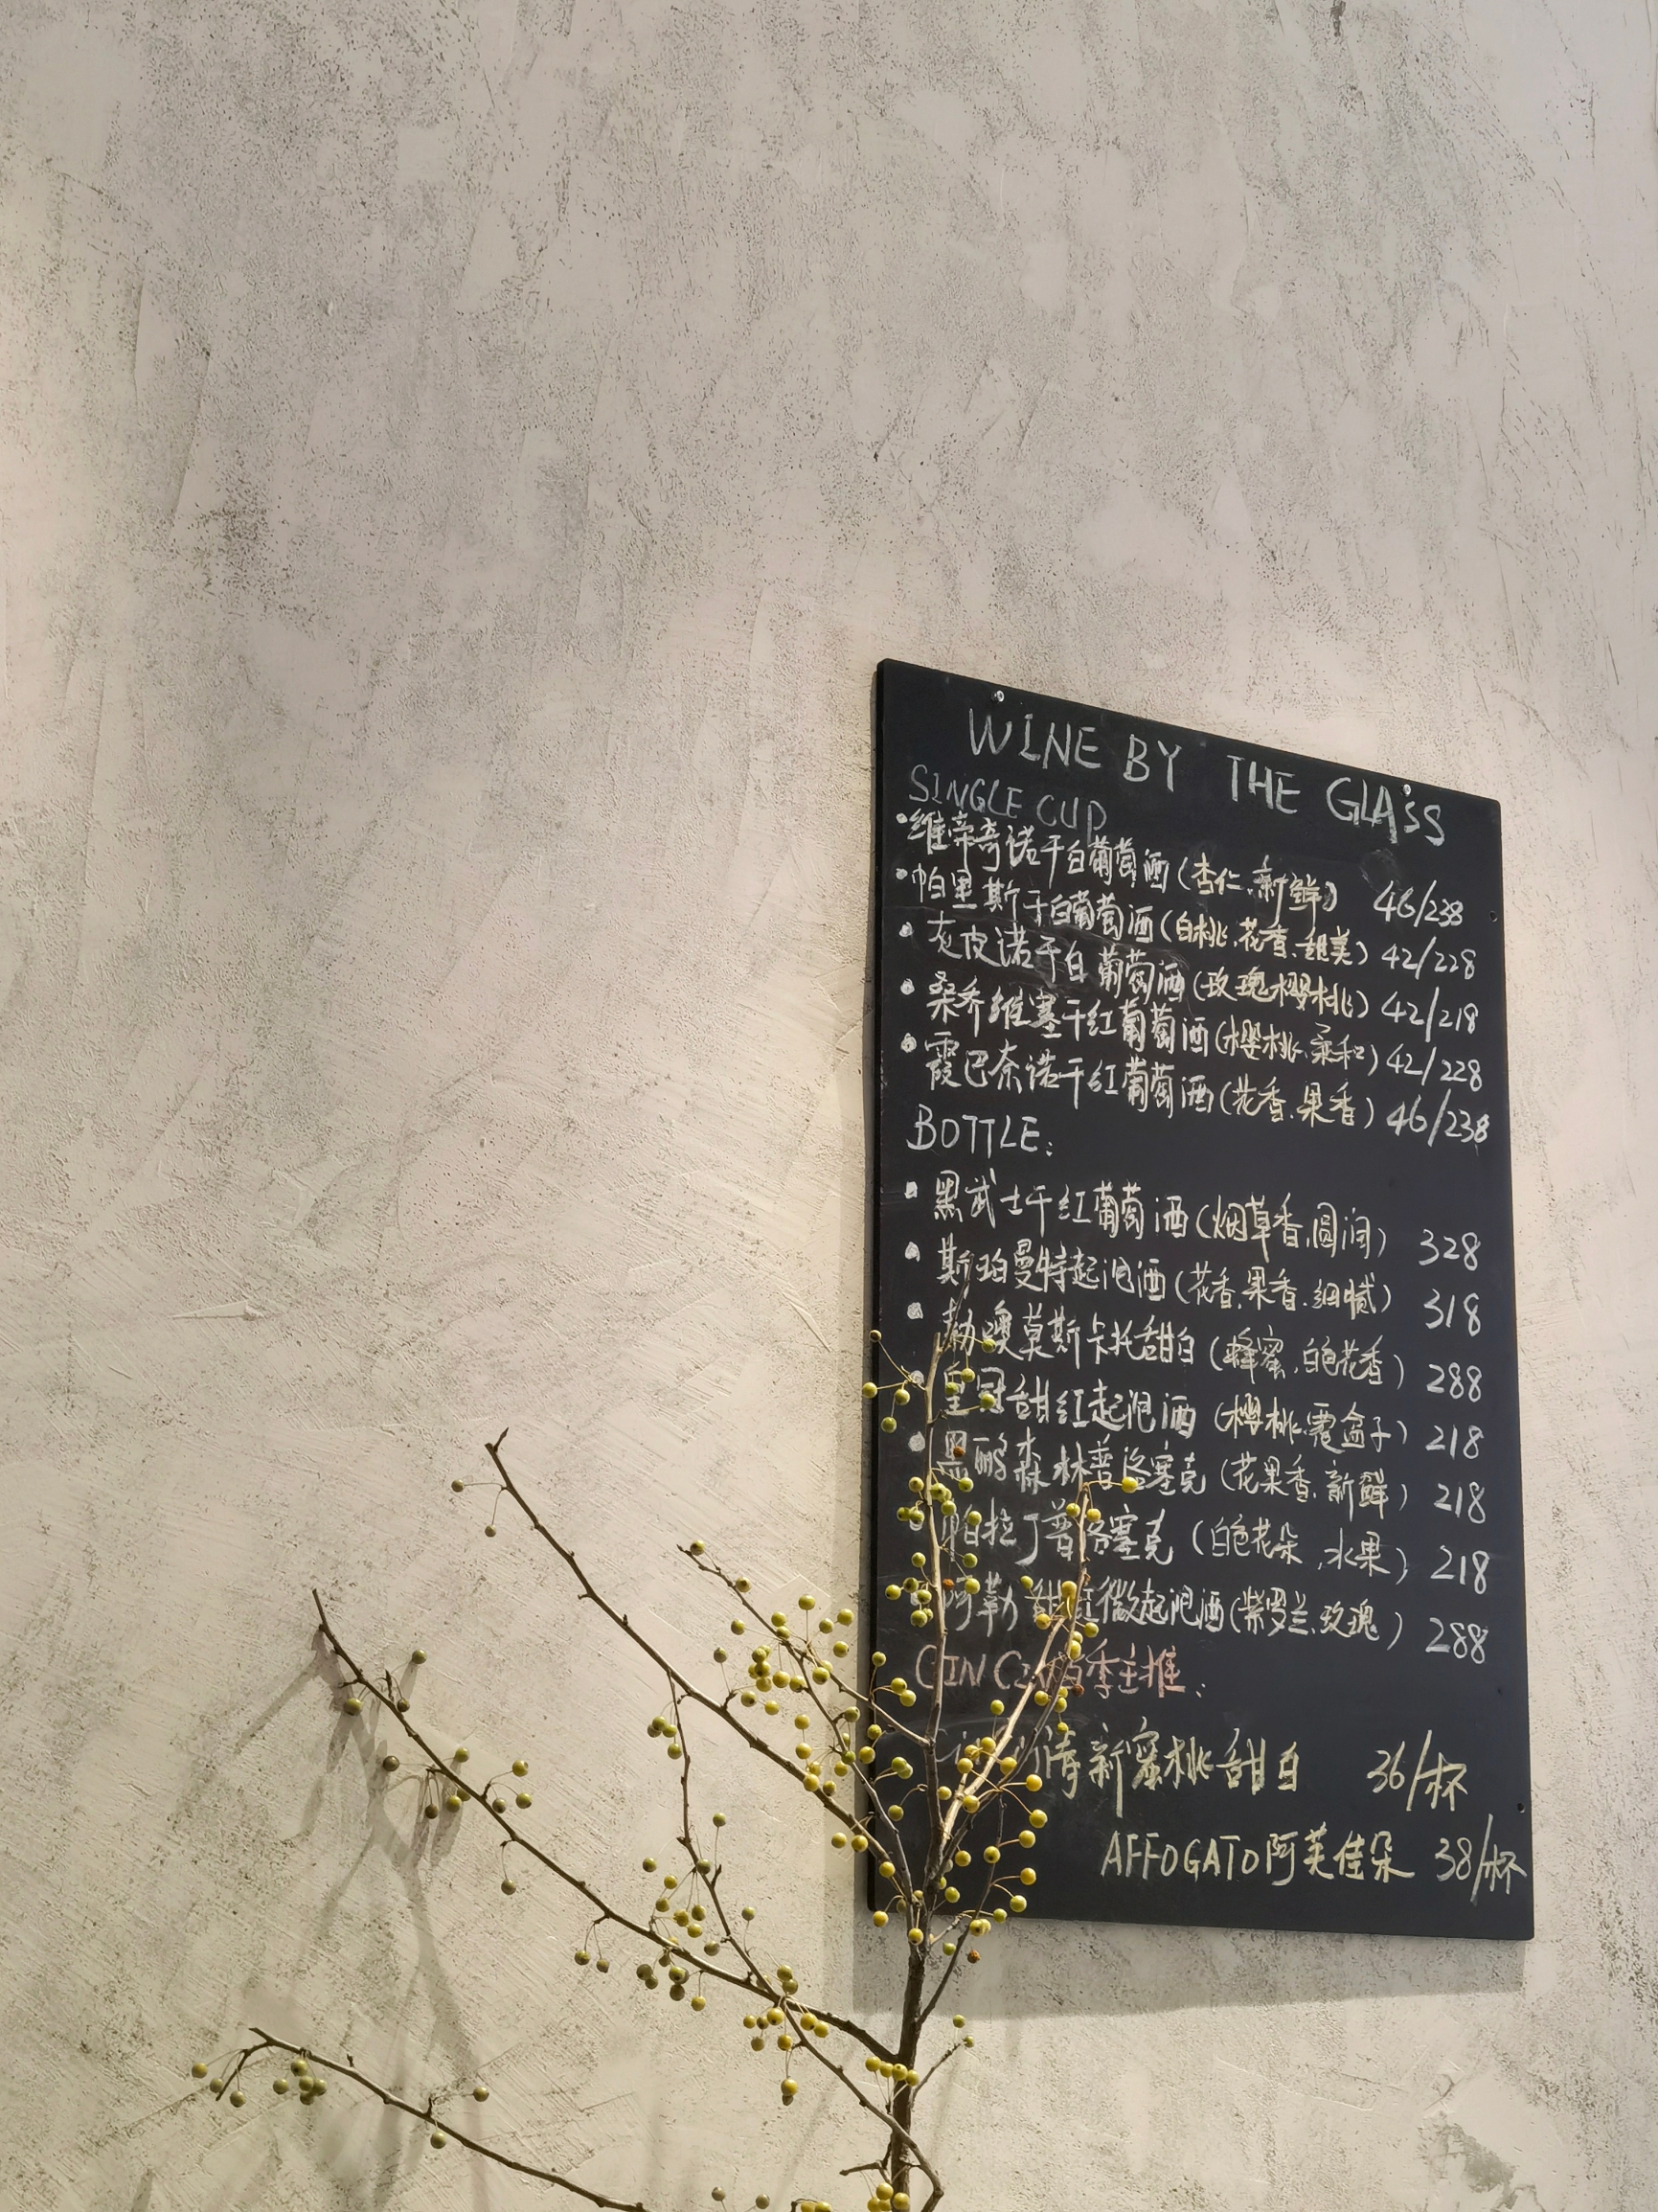 WINE BY THE GLASS
SINGLE CUP
维帝奇诺干白葡萄酒(杏仁.新鲜) 46/238
帕里斯干白葡萄酒(白桃.花香.甜美) 42/228
灰皮诺干白葡萄酒(玫瑰樱桃) 42/218
桑乔维塞干红葡萄酒(樱桃.柔和) 42/228
霞巴奈诺干红葡萄酒(花香.果香) 46/238
BOTTLE:
黑武士干红葡萄酒(烟草香.圆润) 328
斯珀曼特起泡酒(花香.果香.细腻) 318
勒噢莫斯卡托甜白(蜂蜜.白色花香) 288
皇冠甜红起泡酒(樱桃.覆盆子) 218
黑鹂森林普洛塞克(花果香.新鲜) 218
帕拉丁普洛塞克(白色花朵,水果) 218
阿勒甜红微起泡酒(紫罗兰.玫瑰) 288
季主推:
清新蜜桃甜白 36/杯
AFFOGATO阿芙佳朵 38/杯